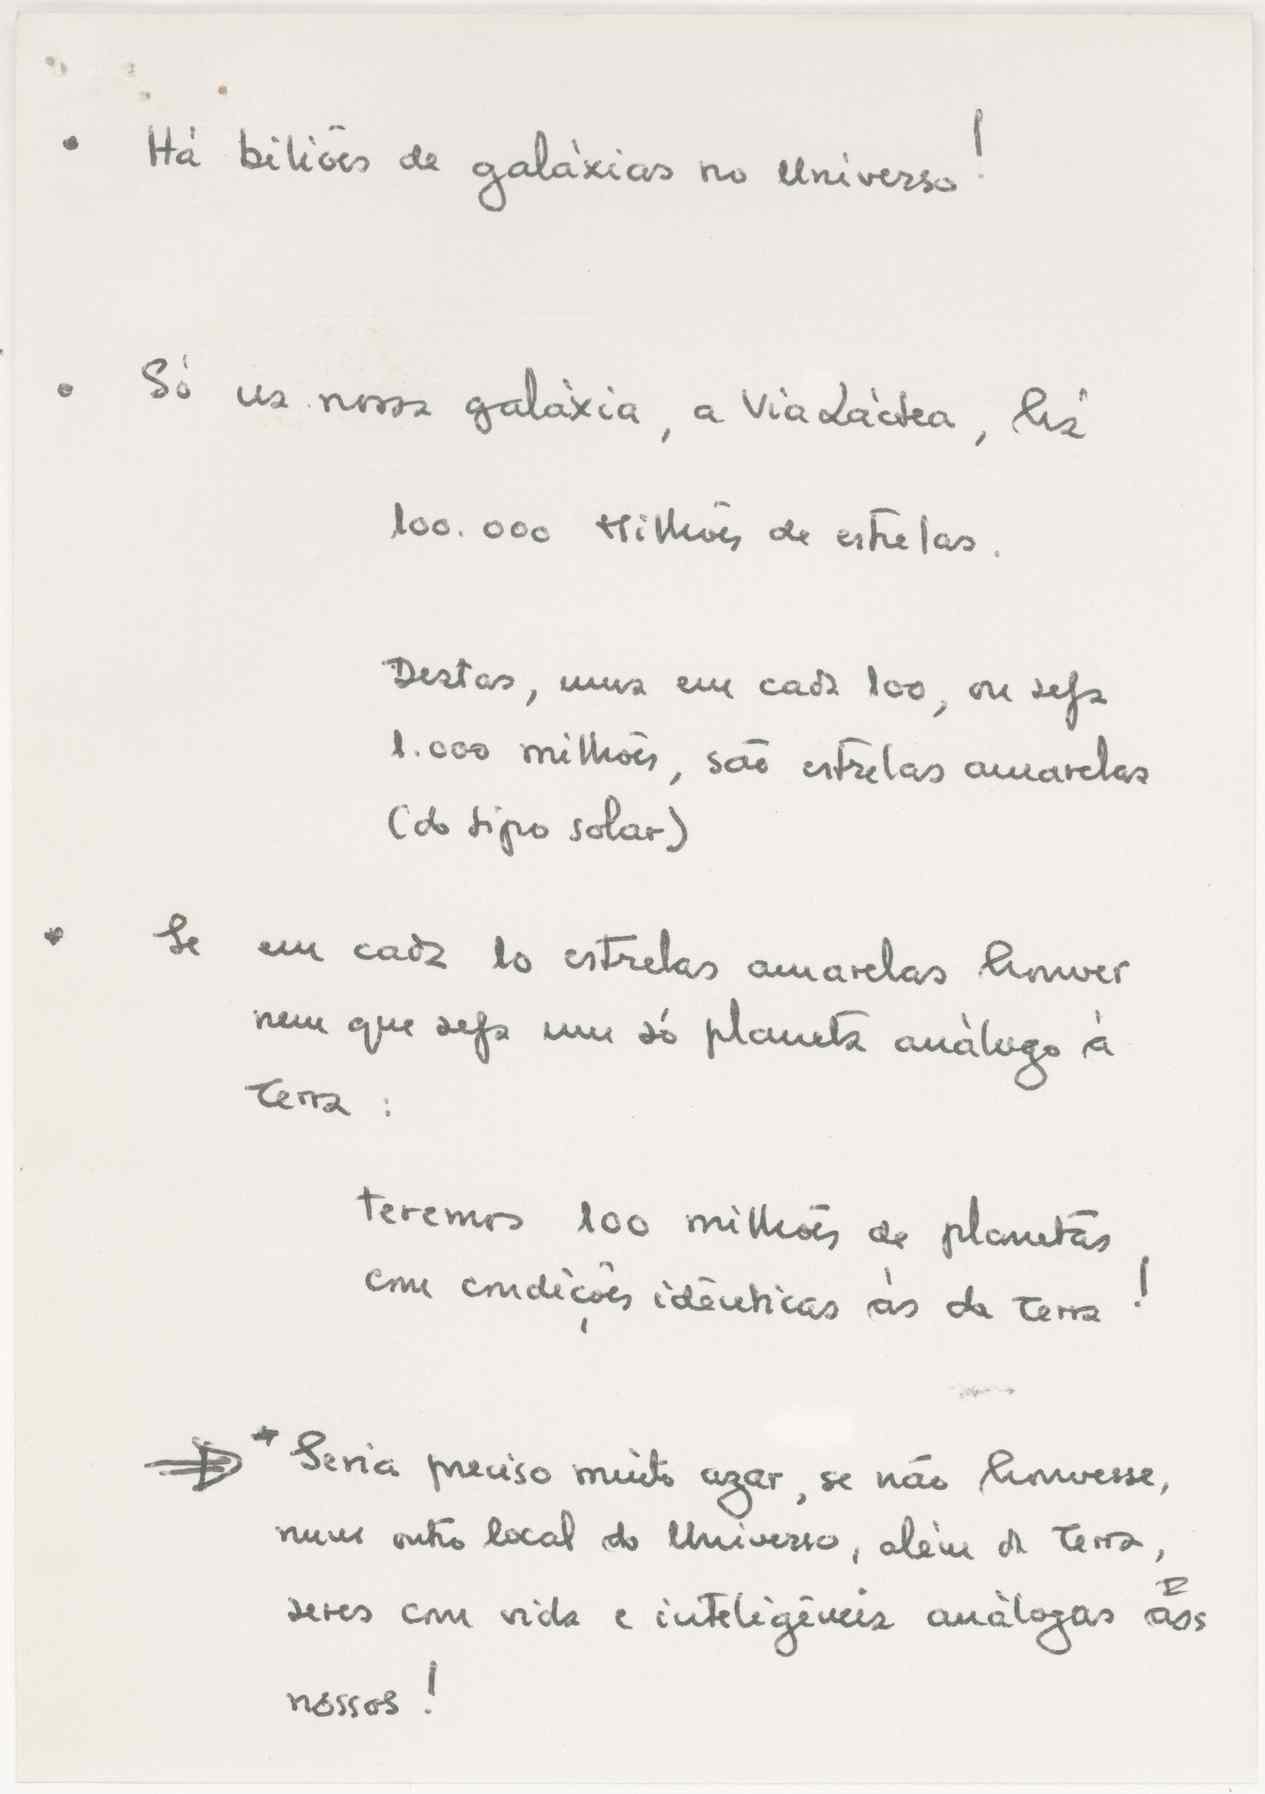 • Há biliões de galáxias no Universo!
• Só na nossa galáxia, a Via Láctea, há
100.000 Milhões de estrelas.
Destas, uma em cada 100, ou seja
1.000 milhões, são estrelas amarelas
(do tipo solar)
* Se em cada 10 estrelas amarelas houver
nem que seja um só planeta análogo à
Terra :
teremos 100 milhões de planetas
com condições idênticas às da Terra!
⇒ * Seria preciso muito azar, se não houvesse,
num outro local do Universo, além da Terra,
seres com vida e inteligência análogas
nossos!